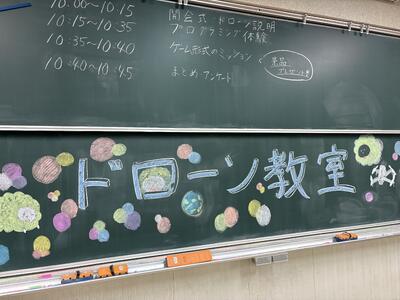 10:00〜10:15 開会式・ドローン説明
10:15〜10:35 プログラミング体験
10:35〜10:40 ゲーム形式のミッション
景品
プレゼント
10:40〜10:45 まとめ・アンケート
ドローン教室